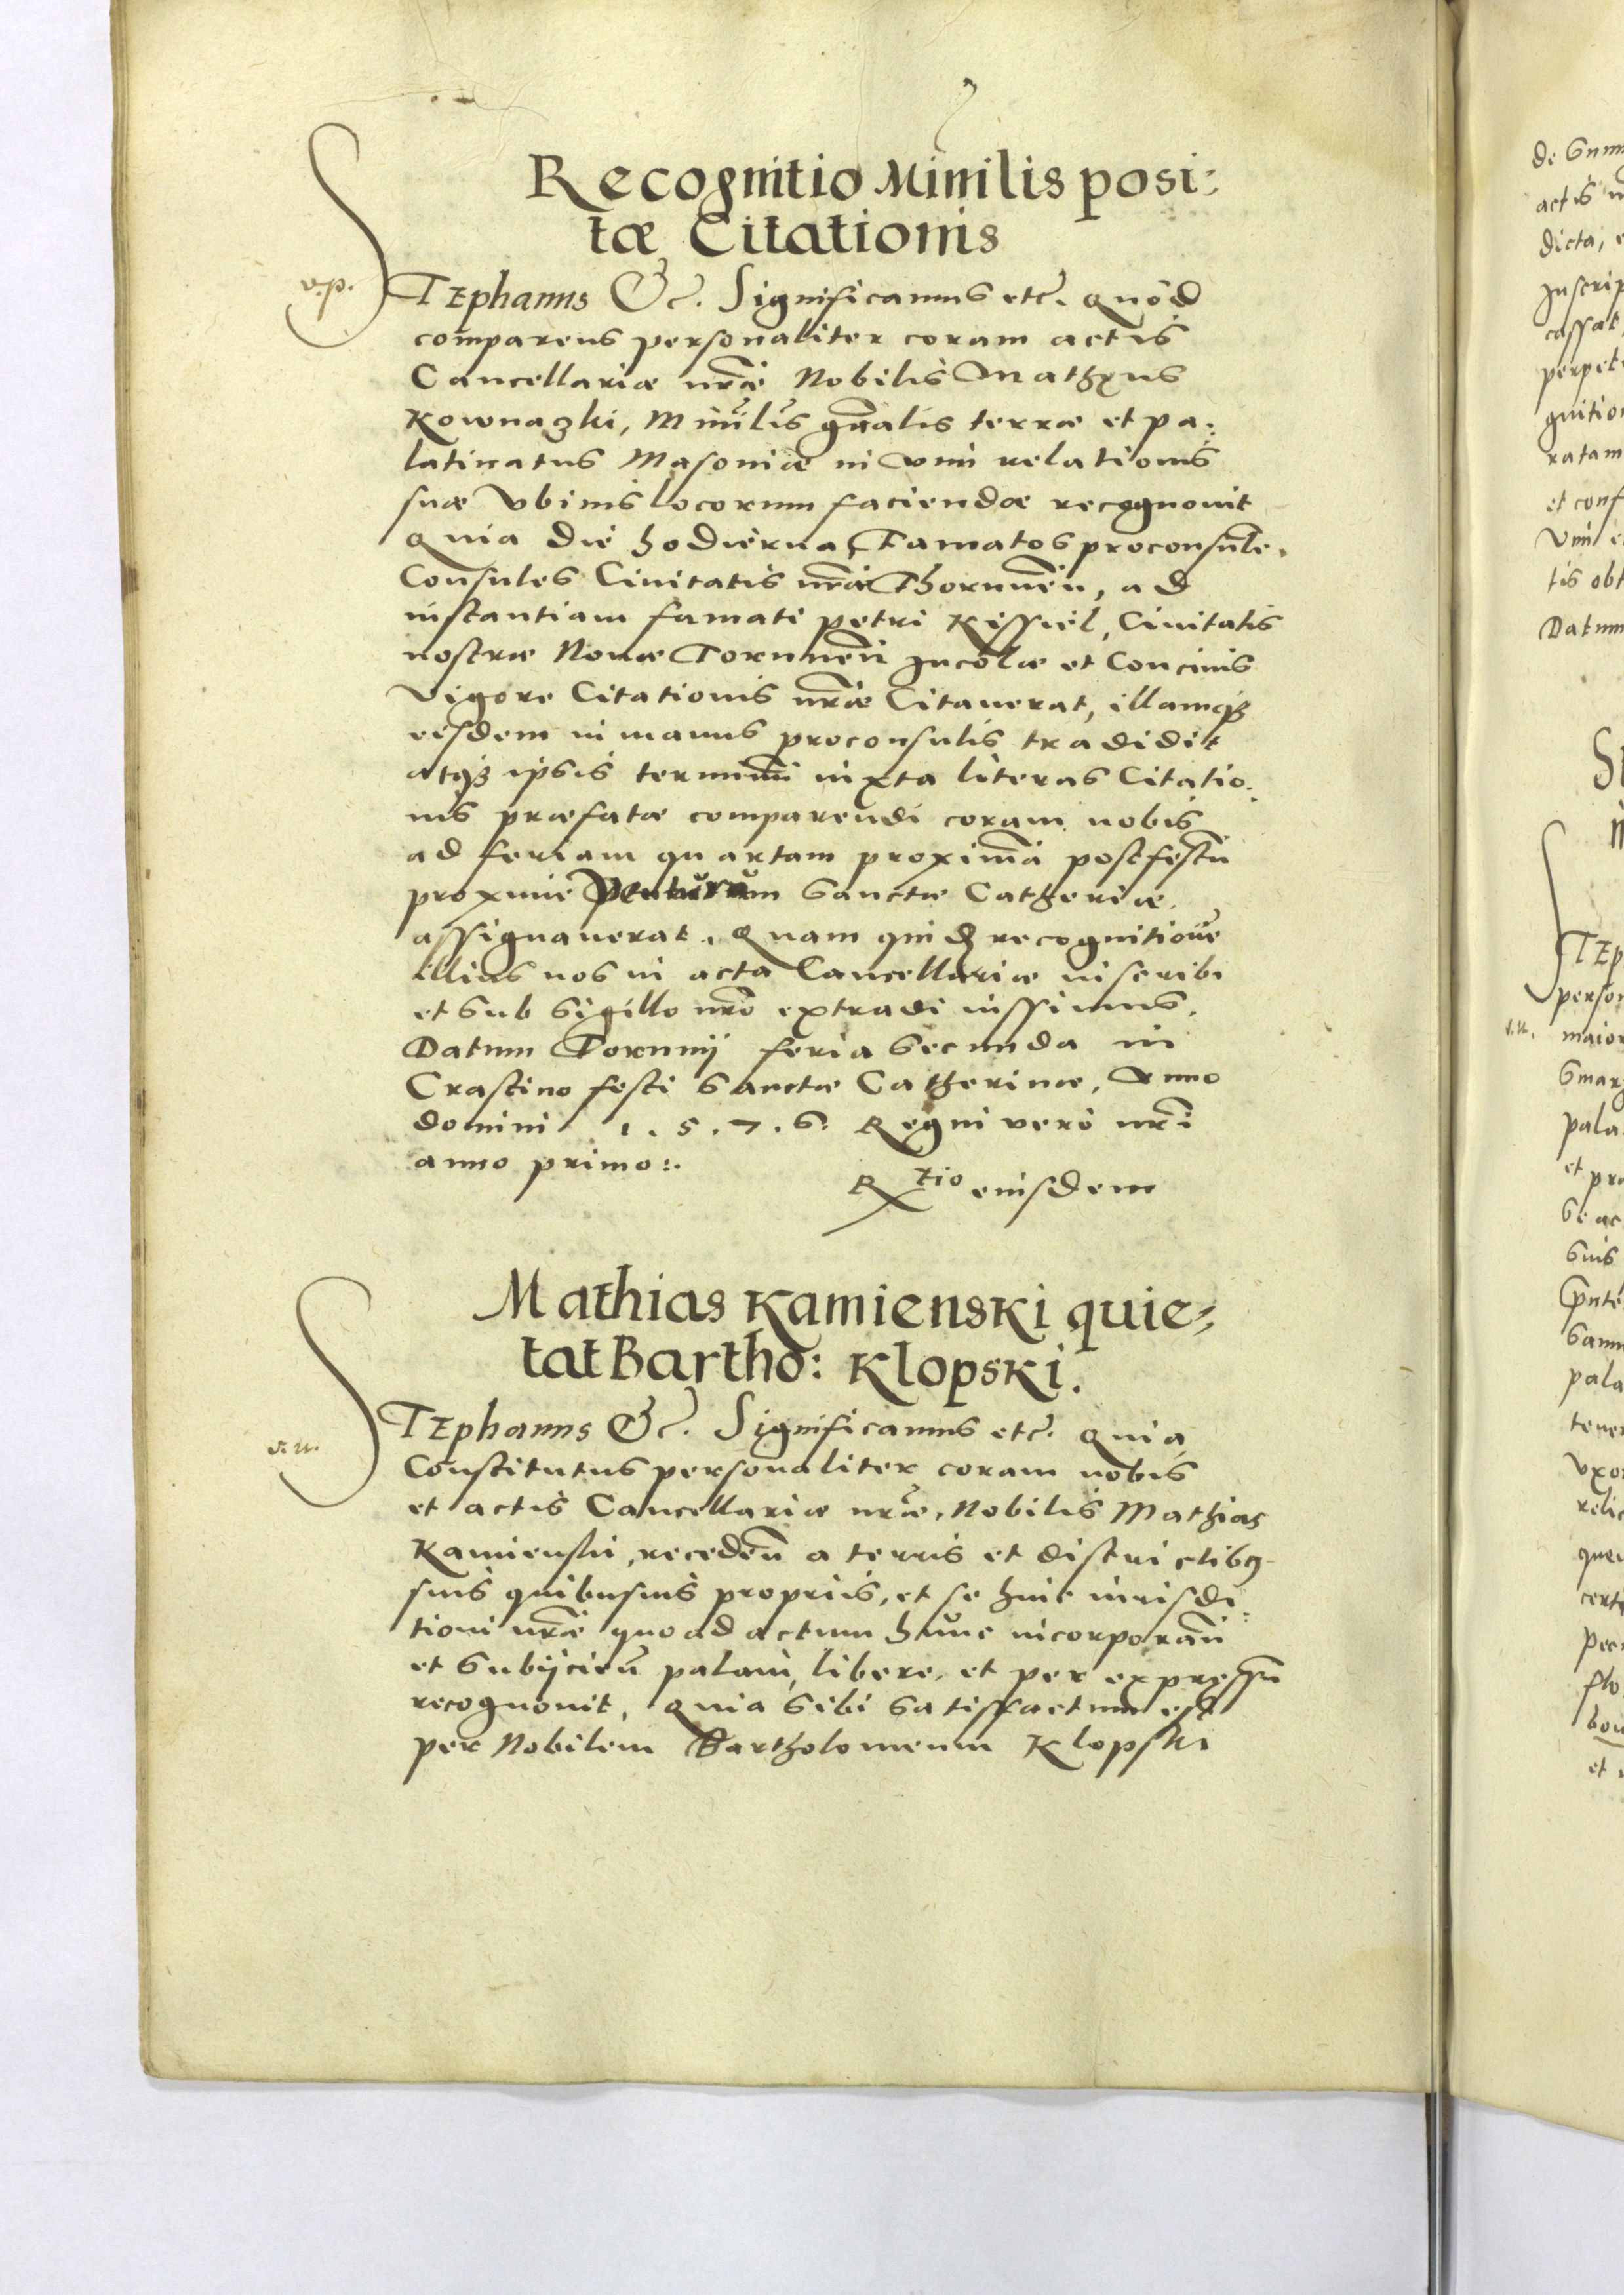 Recognitio Minilis posi:
tæ Citationis
v. p.
STEphanus &c. Significamus etc. Quod
comparens personaliter coram actis
Cancellariæ nrae Nobilis Mathæus
Kownazki, Minlis gnalis terræ et pa:
latinatus Masoniæ in vim relationis
suæ Vbivis locorum faciendæ recognouit
Quia die hodierna Famatos proconsule.
Consules Ciuitatis nrae Thorunen, ad
instantiam famati petri Kissiel, Ciuitatis
nostræ Nouæ Torunen Incolæ et Conciuis
Vigore Citationis nræ Citauerat, illamq3
eisdem in manus proconsulis tradidit
atq3 ipsis terminum iuxta literas Citatio:
nis præfatæ comparendi coram nobis
ad feriam quartam proxima post festu
proxime venturum Sanctæ Catheriæ
assignauerat. Quam quid recognitione
illius nos in acta Cancellariæ inscribi
et sub sigillo nro extradi iussimus.
Datum Torunij feria secunda in
Crastino festi Sanctæ Catherinæ, Anno
domini 1.5.7.6. Regni vero nri
anno primo:.
Rtio eiusdem
Mathias Kamienski quie:
tat Bartho: Klopski.
v. n.
STEphanus &c. Significamus etc. Quia
Constitutus personaliter coram nobis
et actis Cancellariæ nræ, Nobilis Mathias
Kamienski, receden a terris et districtibq
suis quibusuis propriis, et se huic iurisdi:
tioni nræ quo ad actum hunc incorporan
et Subijcien palam, libere, et per expressu
recognouit, Quia sibi satisfactum est
per Nobilem Bartholomeum Klopski